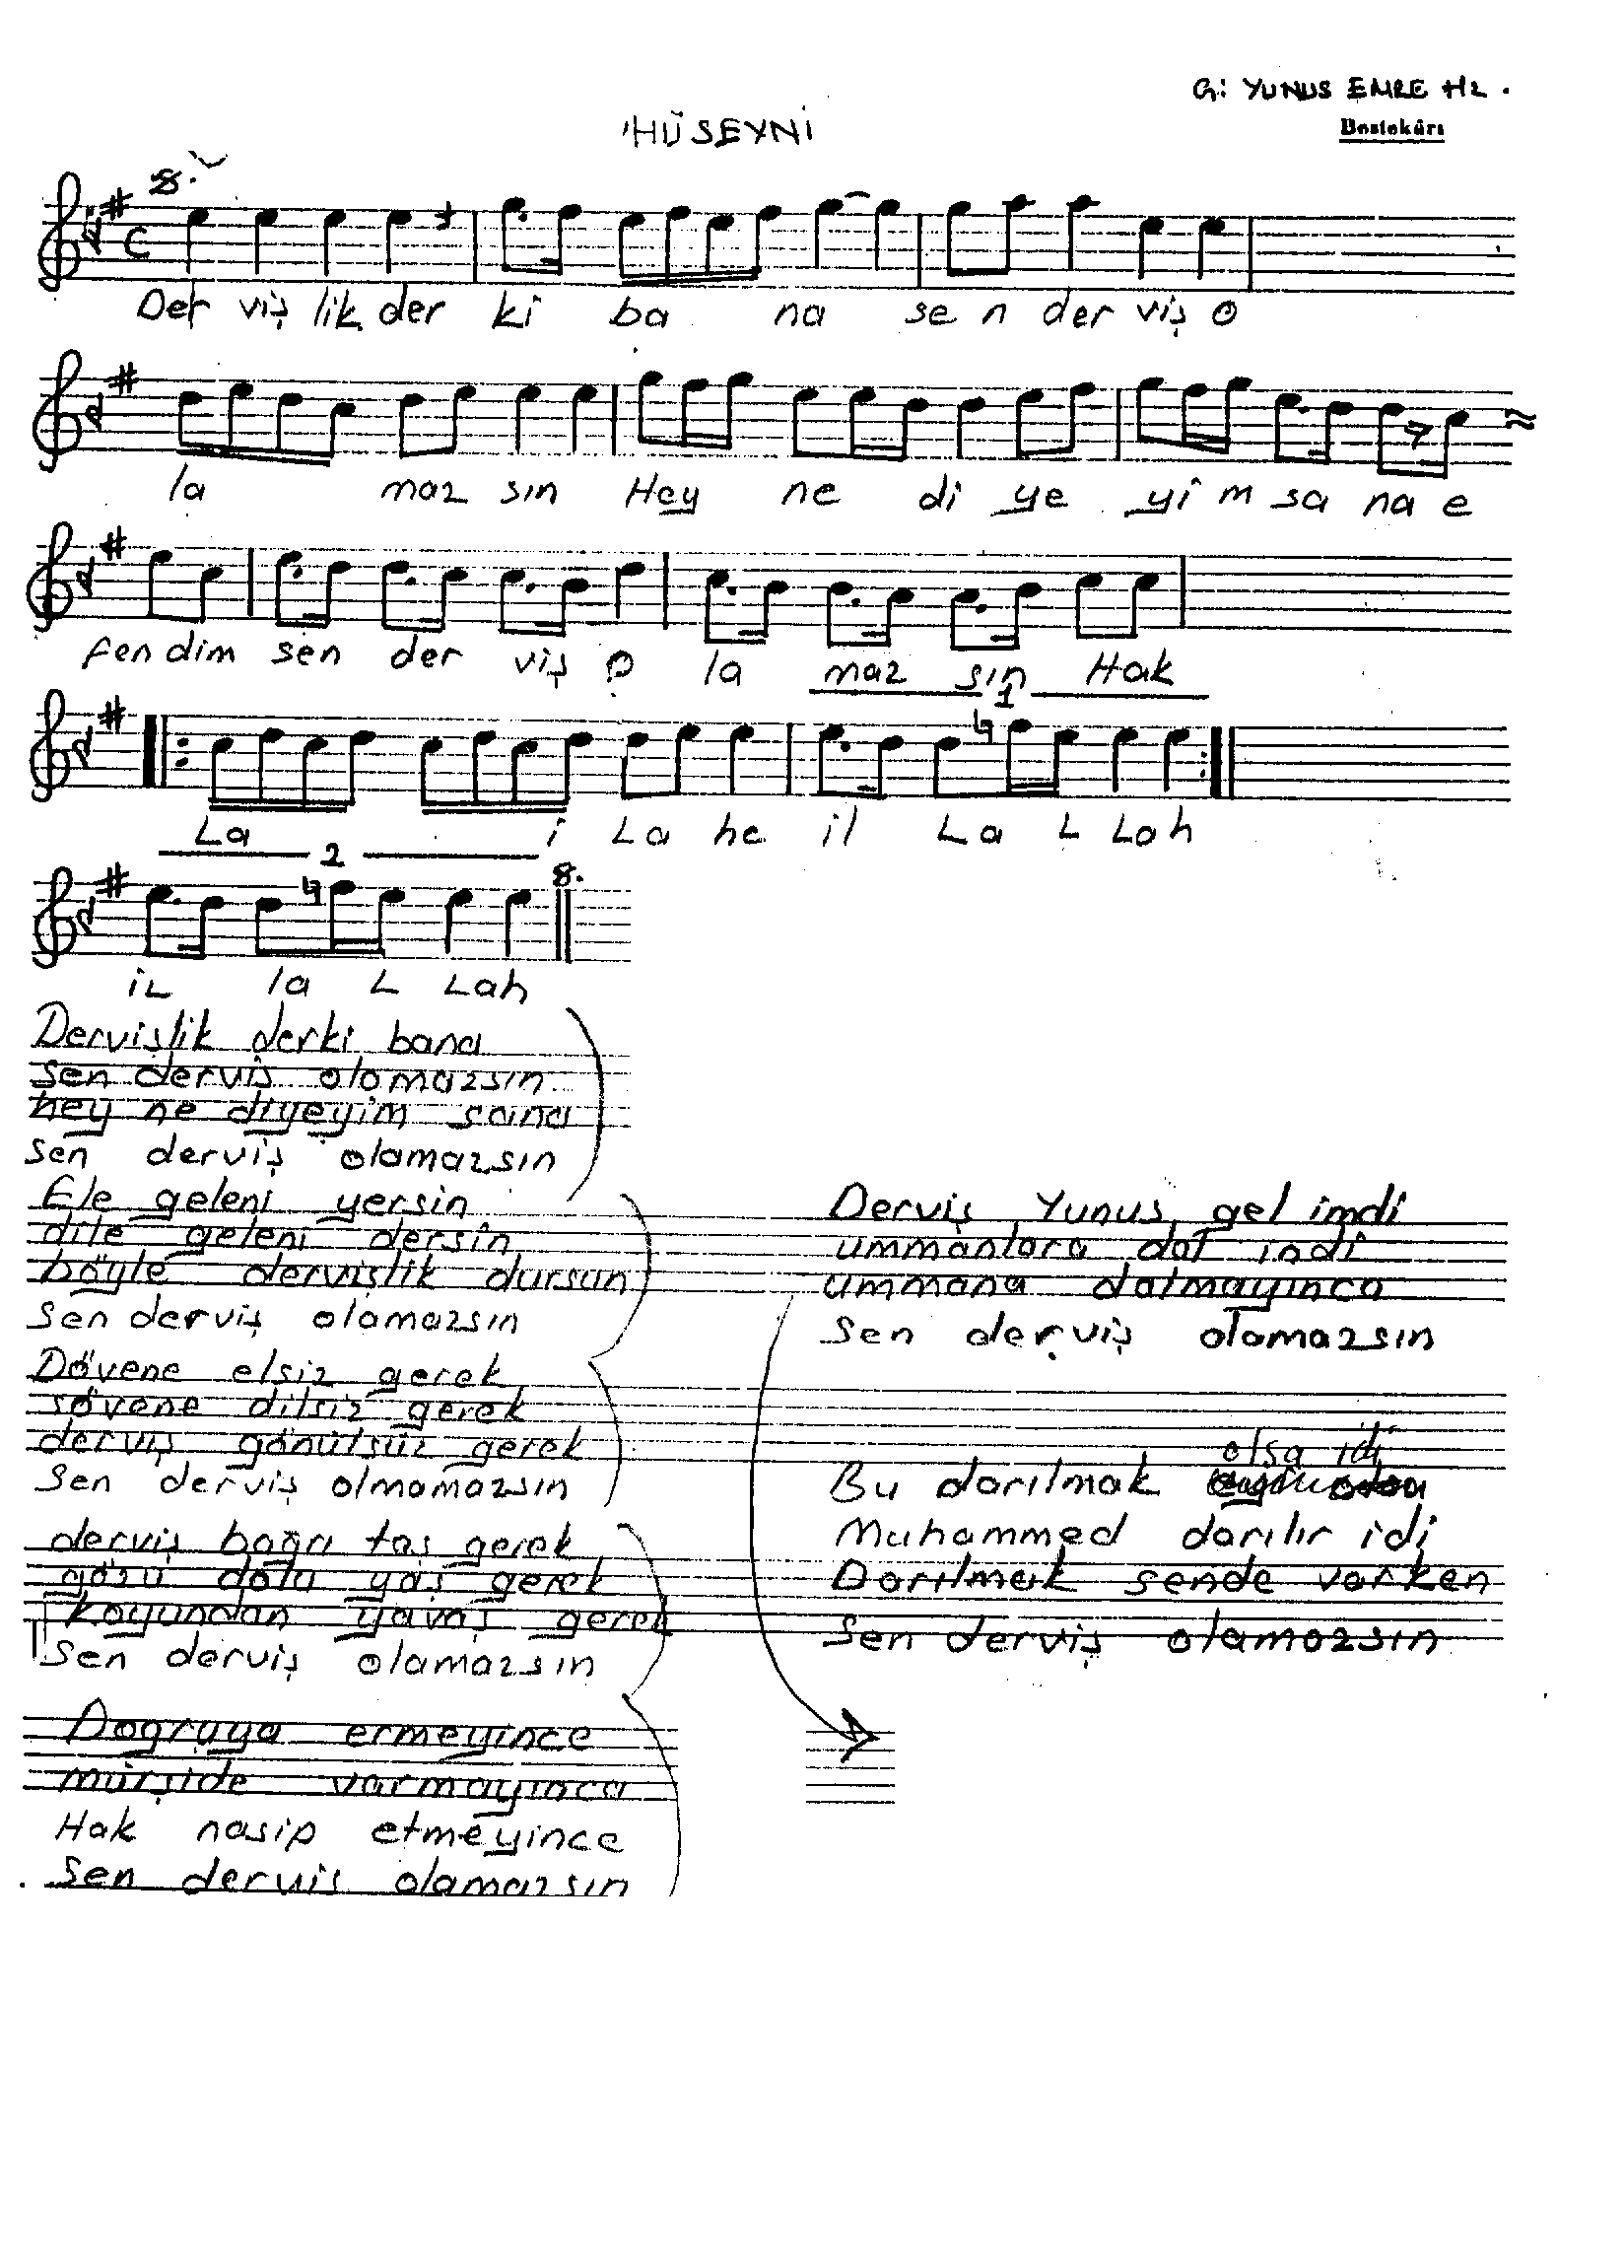 G: YUNUS EMRE Hz.
Bestekârı
HÜSEYNİ
Der viş lik der ki ba na se n der viş o
la maz sın Hey ne di ye yi m sa na e
fen dim sen der viş o la maz sın Hak
1
La i La he il La L Lah
2
iL la L Lah
Dervişlik derki bana
sen derviş olamazsın
hey ne diyeyim sana
sen derviş olamazsın
Ele geleni yersin
dile geleni dersin
böyle dervişlik dursun
Sen derviş olamazsın
Dövene elsiz gerek
sövene dilsiz gerek
derviş gönülsüz gerek
Sen derviş olmamazsın
derviş bağrı taş gerek
gözü dolu yaş gerek
Koyundan yavaş gerek
Sen derviş olamazsın
Doğruya ermeyince
mürşide varmayınca
Hak nasip etmeyince
Sen derviş olamazsın
Derviş Yunus gel imdi
ummanlara dal indi
ummana dalmayınca
Sen derviş olamazsın
olsa idi
Bu darılmak
Muhammed darılır idi
Darılmak sende varken
Sen derviş olamazsın